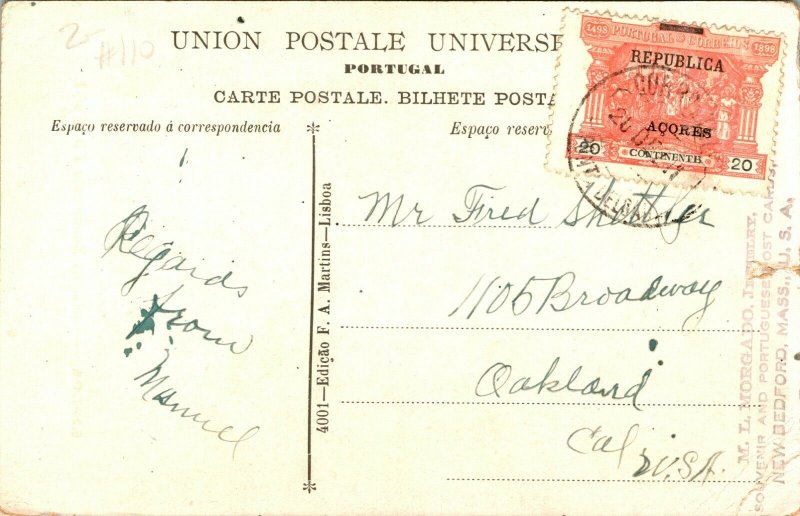 2-
#110
UNION POSTALE UNIVERSE
PORTUGAL
CARTE POSTALE. BILHETE POSTA
Espaço reservado á correspondencia
Espaço reserv
1498 PORTUGAL CORREIOS 1898
REPUBLICA
AÇORES
20 CONTINENTE 20
Regards
from
Manuel
4001—Edição F. A. Martins—Lisboa
Mr Fred
1105 Broadway
Oakland
Cal U.S.A.
M. L. MORGADO, JEWELRY,
SOUVENIR AND PORTUGUESE POST CARDS
NEW BEDFORD, MASS., U. S. A.